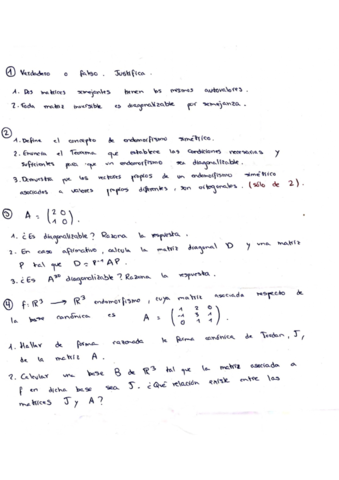 ① Verdadero o Falso. Justifica.
1. Dos matrices semejantes tienen los mismos autovalores.
2. Toda matriz invertible es diagonalizable por semejanza.
②
1. Define el concepto de endomorfismo simétrico.
2. Enuncia el Teorema que establece las condiciones necesarias y
suficientes para que un endomorfismo sea diagonalizable.
3. Demuestra que los vectores propios de un endomorfismo simétrico
asociados a valores propios diferentes, son ortogonales. (sólo de 2).
③ A = (2 0
1 0).
1. ¿Es diagonalizable? Razona la respuesta.
2. En caso afirmativo, calcula la matriz diagonal D y una matriz
P tal que D = P⁻¹AP.
3. ¿Es diagonalizable? Razona la respuesta.
④ f: ℝ³ → ℝ³ endomorfismo, cuya matriz asociada respecto de
la base canónica es A = (1 2 0
-1 3 1
0 1 1)
1. Hallar de forma razonada la forma canónica de Jordan, J,
de la matriz A.
2. Calcular una base B de ℝ³ tal que la matriz asociada a
f en dicha base sea J. ¿Qué relación existe entre las
matrices J y A?